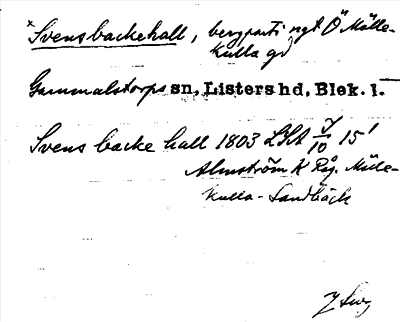 *Svensbackehall, bergparti ngt Ö Mölle-
kulla gd
Gammalstorps sn, Listers hd, Blek. l.
Svens backe hall 1803 LSA J/10 15'
Almström K Råg. Mölle-
kulla - Sandbäck